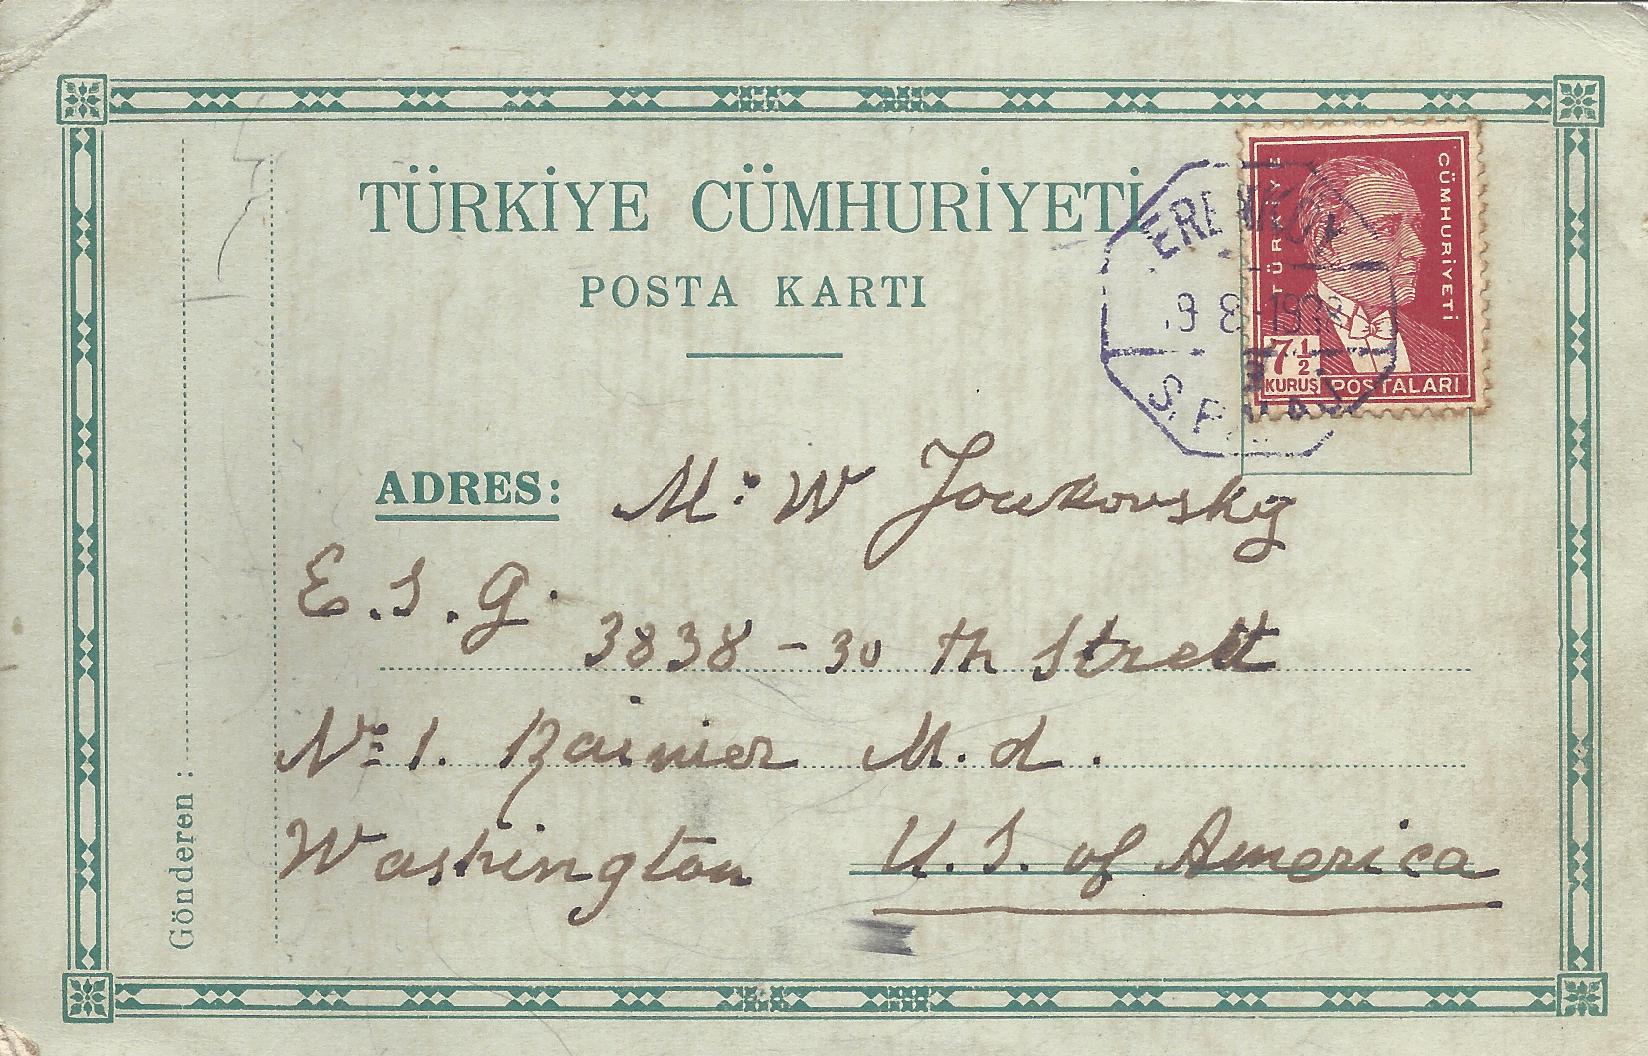 TÜRKİYE CÜMHURİYETİ
POSTA KARTI
TÜRKİYE
CÜMHURİYETİ
7½
KURUŞ POSTALARI
ERENKÖY
9 8 193
ADRES: Mr: W Joukovsky
E. S. G.
3838 - 30 th Strett
No 1. Rainier M. d.
Washington U. S. of America
Gönderen :